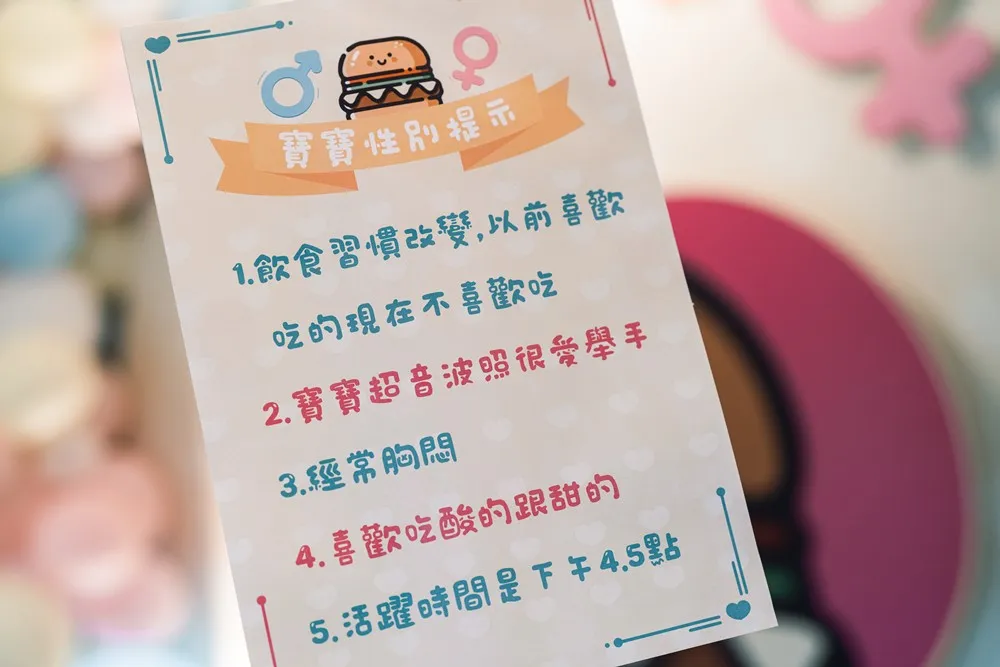 寶寶性別提示
1.飲食習慣改變,以前喜歡
吃的現在不喜歡吃
2.寶寶超音波照很愛舉手
3.經常胸悶
4.喜歡吃酸的跟甜的
5.活躍時間是下午4.5點